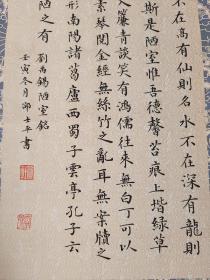 不在高有仙則名水不在深有龍則
斯是陋室惟吾德馨苔痕上堦綠草
入簾青談笑有鴻儒往來無白丁可以
素琴閱金經無絲竹之亂耳無案牘之
形南陽諸葛廬西蜀子雲亭孔子云
陋之有 劉禹錫陋室銘
壬寅冬月 士平書